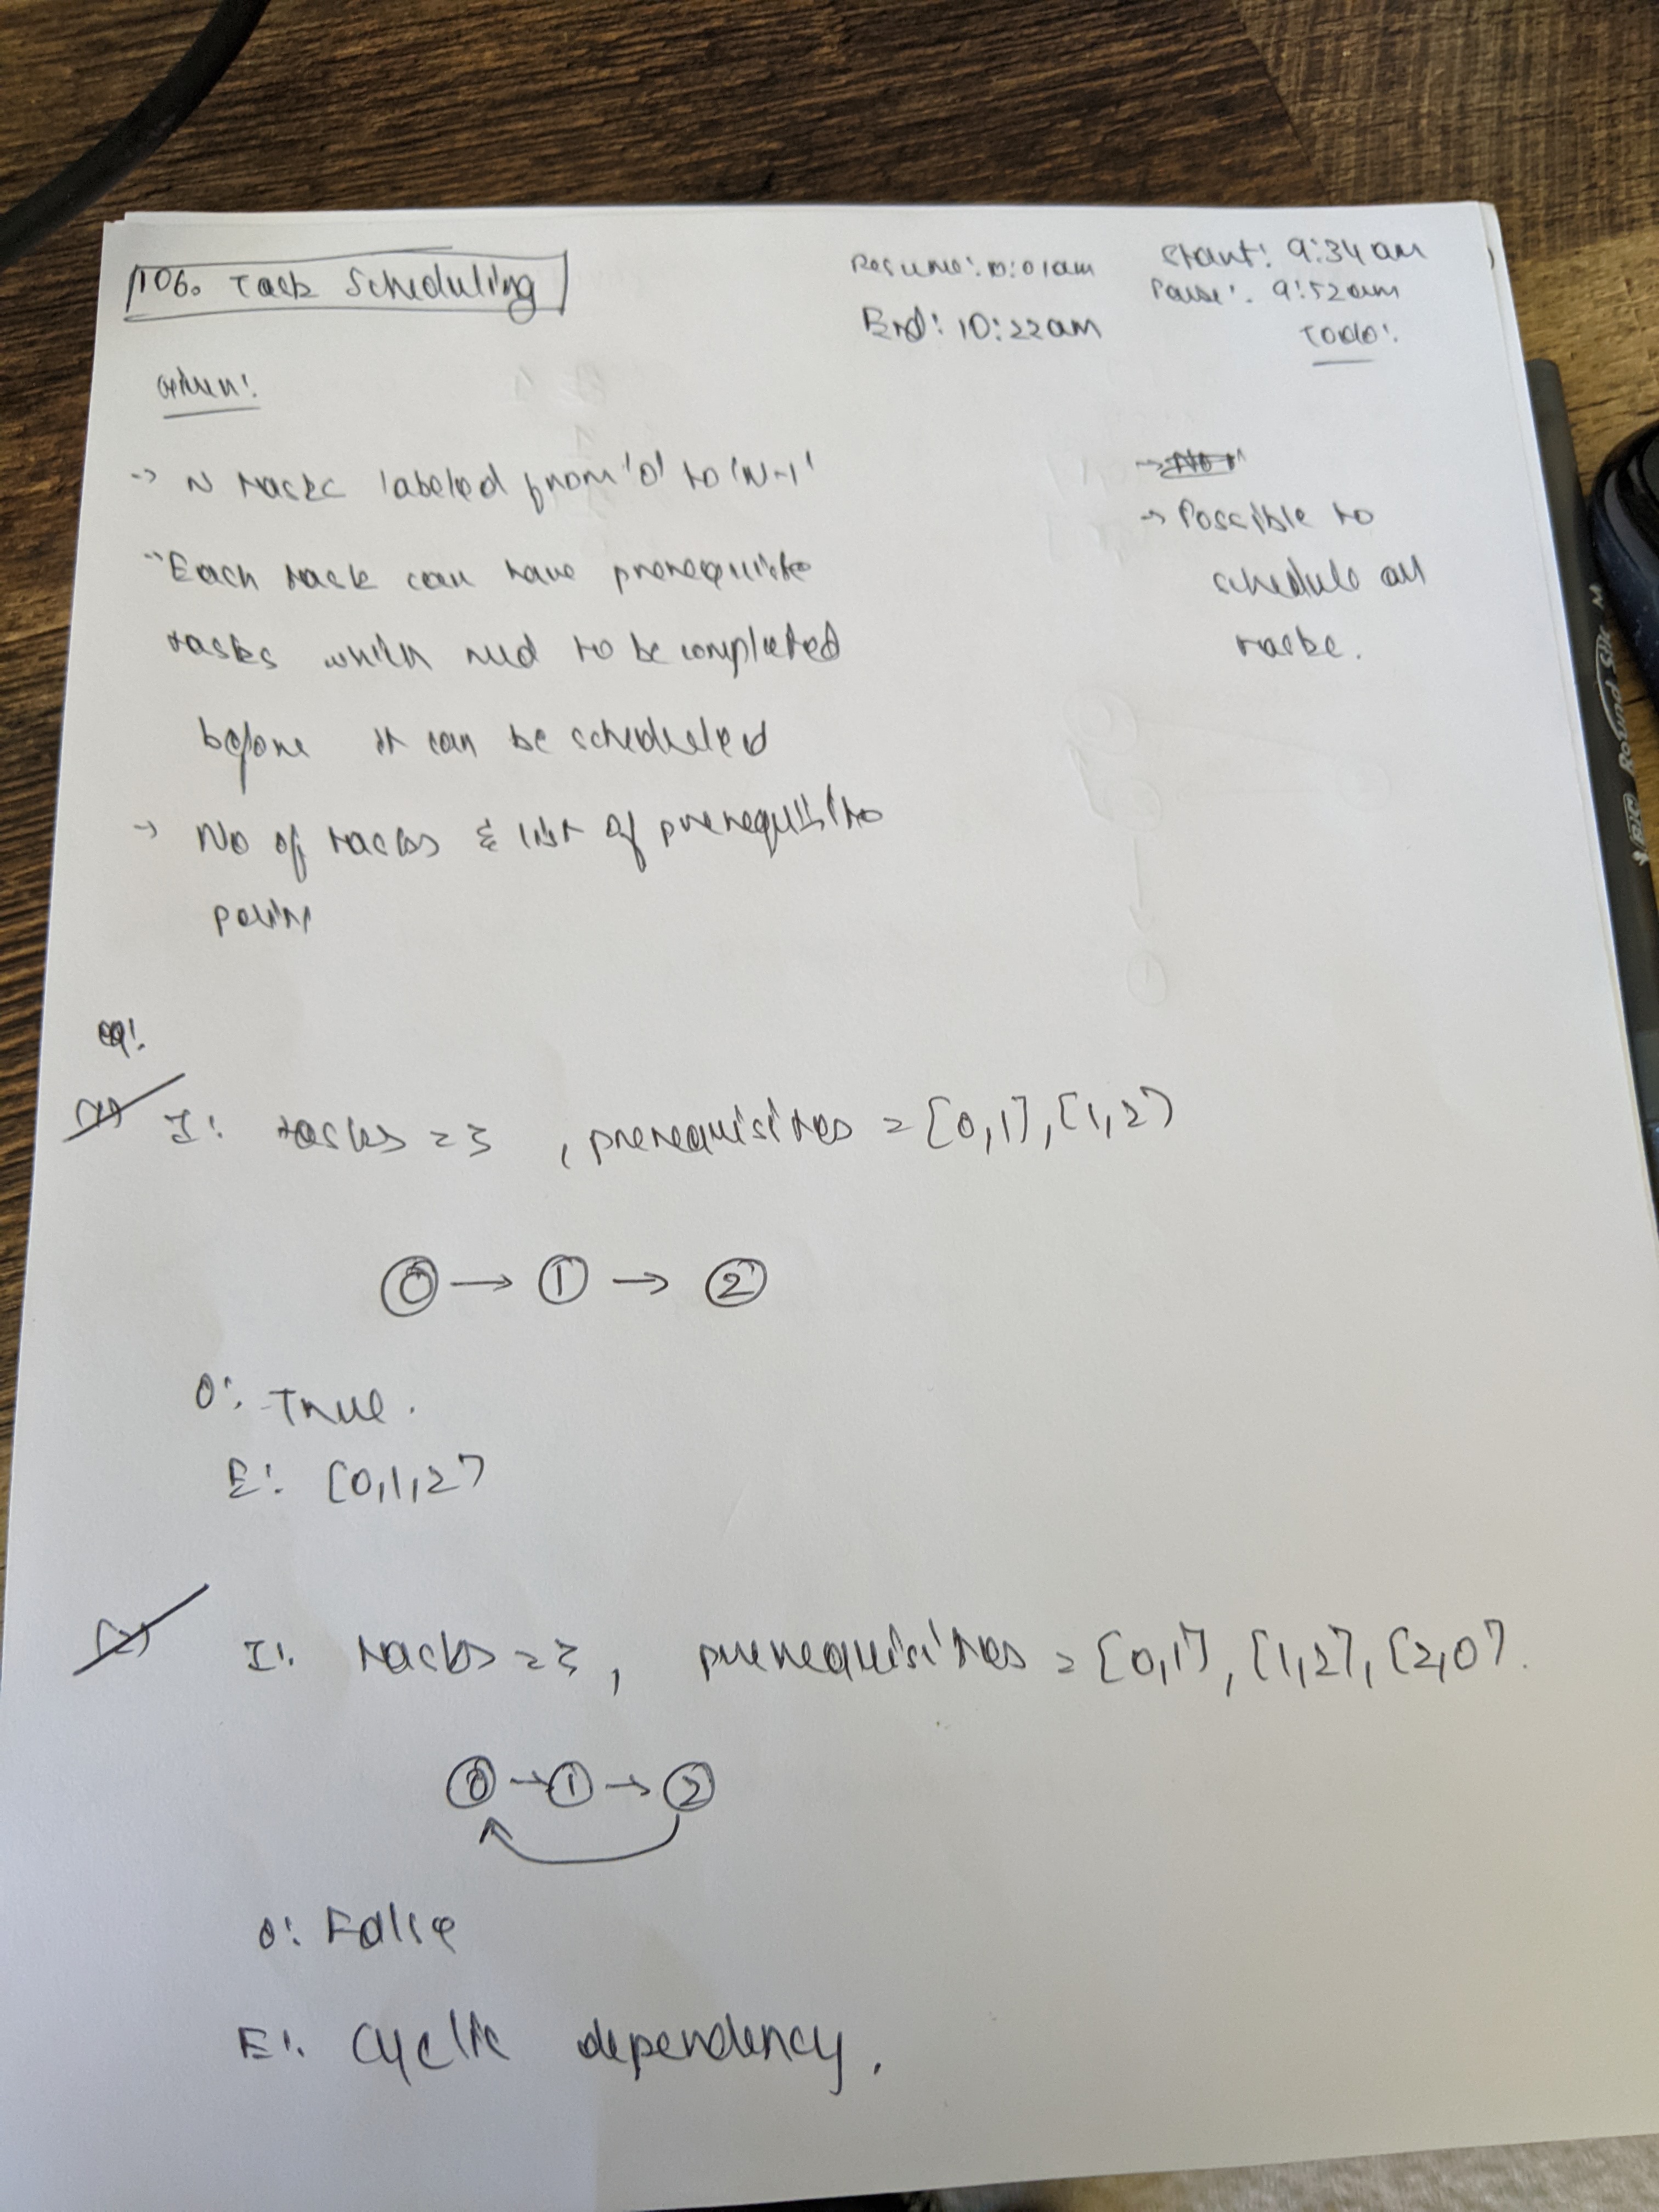 106. Task Scheduling
Resume: 10:01am
End: 10:22am
Start: 9:34 am
Pause: 9:52am
Todo:
Given:
-> N tasks labeled from '0' to 'N-1'
-> Each task can have prerequisite
tasks which need to be completed
before it can be scheduled
-> No of tasks & list of prerequisite
pairs
-> Possible to
schedule all
tasks.
eg:
(1) I: tasks = 3, prerequisites = [0,1], [1,2]
0 → 1 → 2
O: True.
E: [0,1,2]
(2) I: tasks = 3, prerequisites = [0,1], [1,2], [2,0].
0 → 1 → 2
O: False
E: Cyclic dependency.
BIC Round Stic M